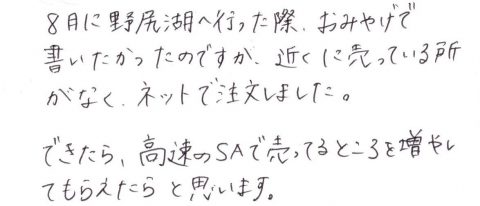 8月に野尻湖へ行った際、おみやげで
書いたかったのですが、近くに売っている所
がなく、ネットで注文しました。
できたら、高速のSAで売ってるところを増やし
てもらえたらと思います。